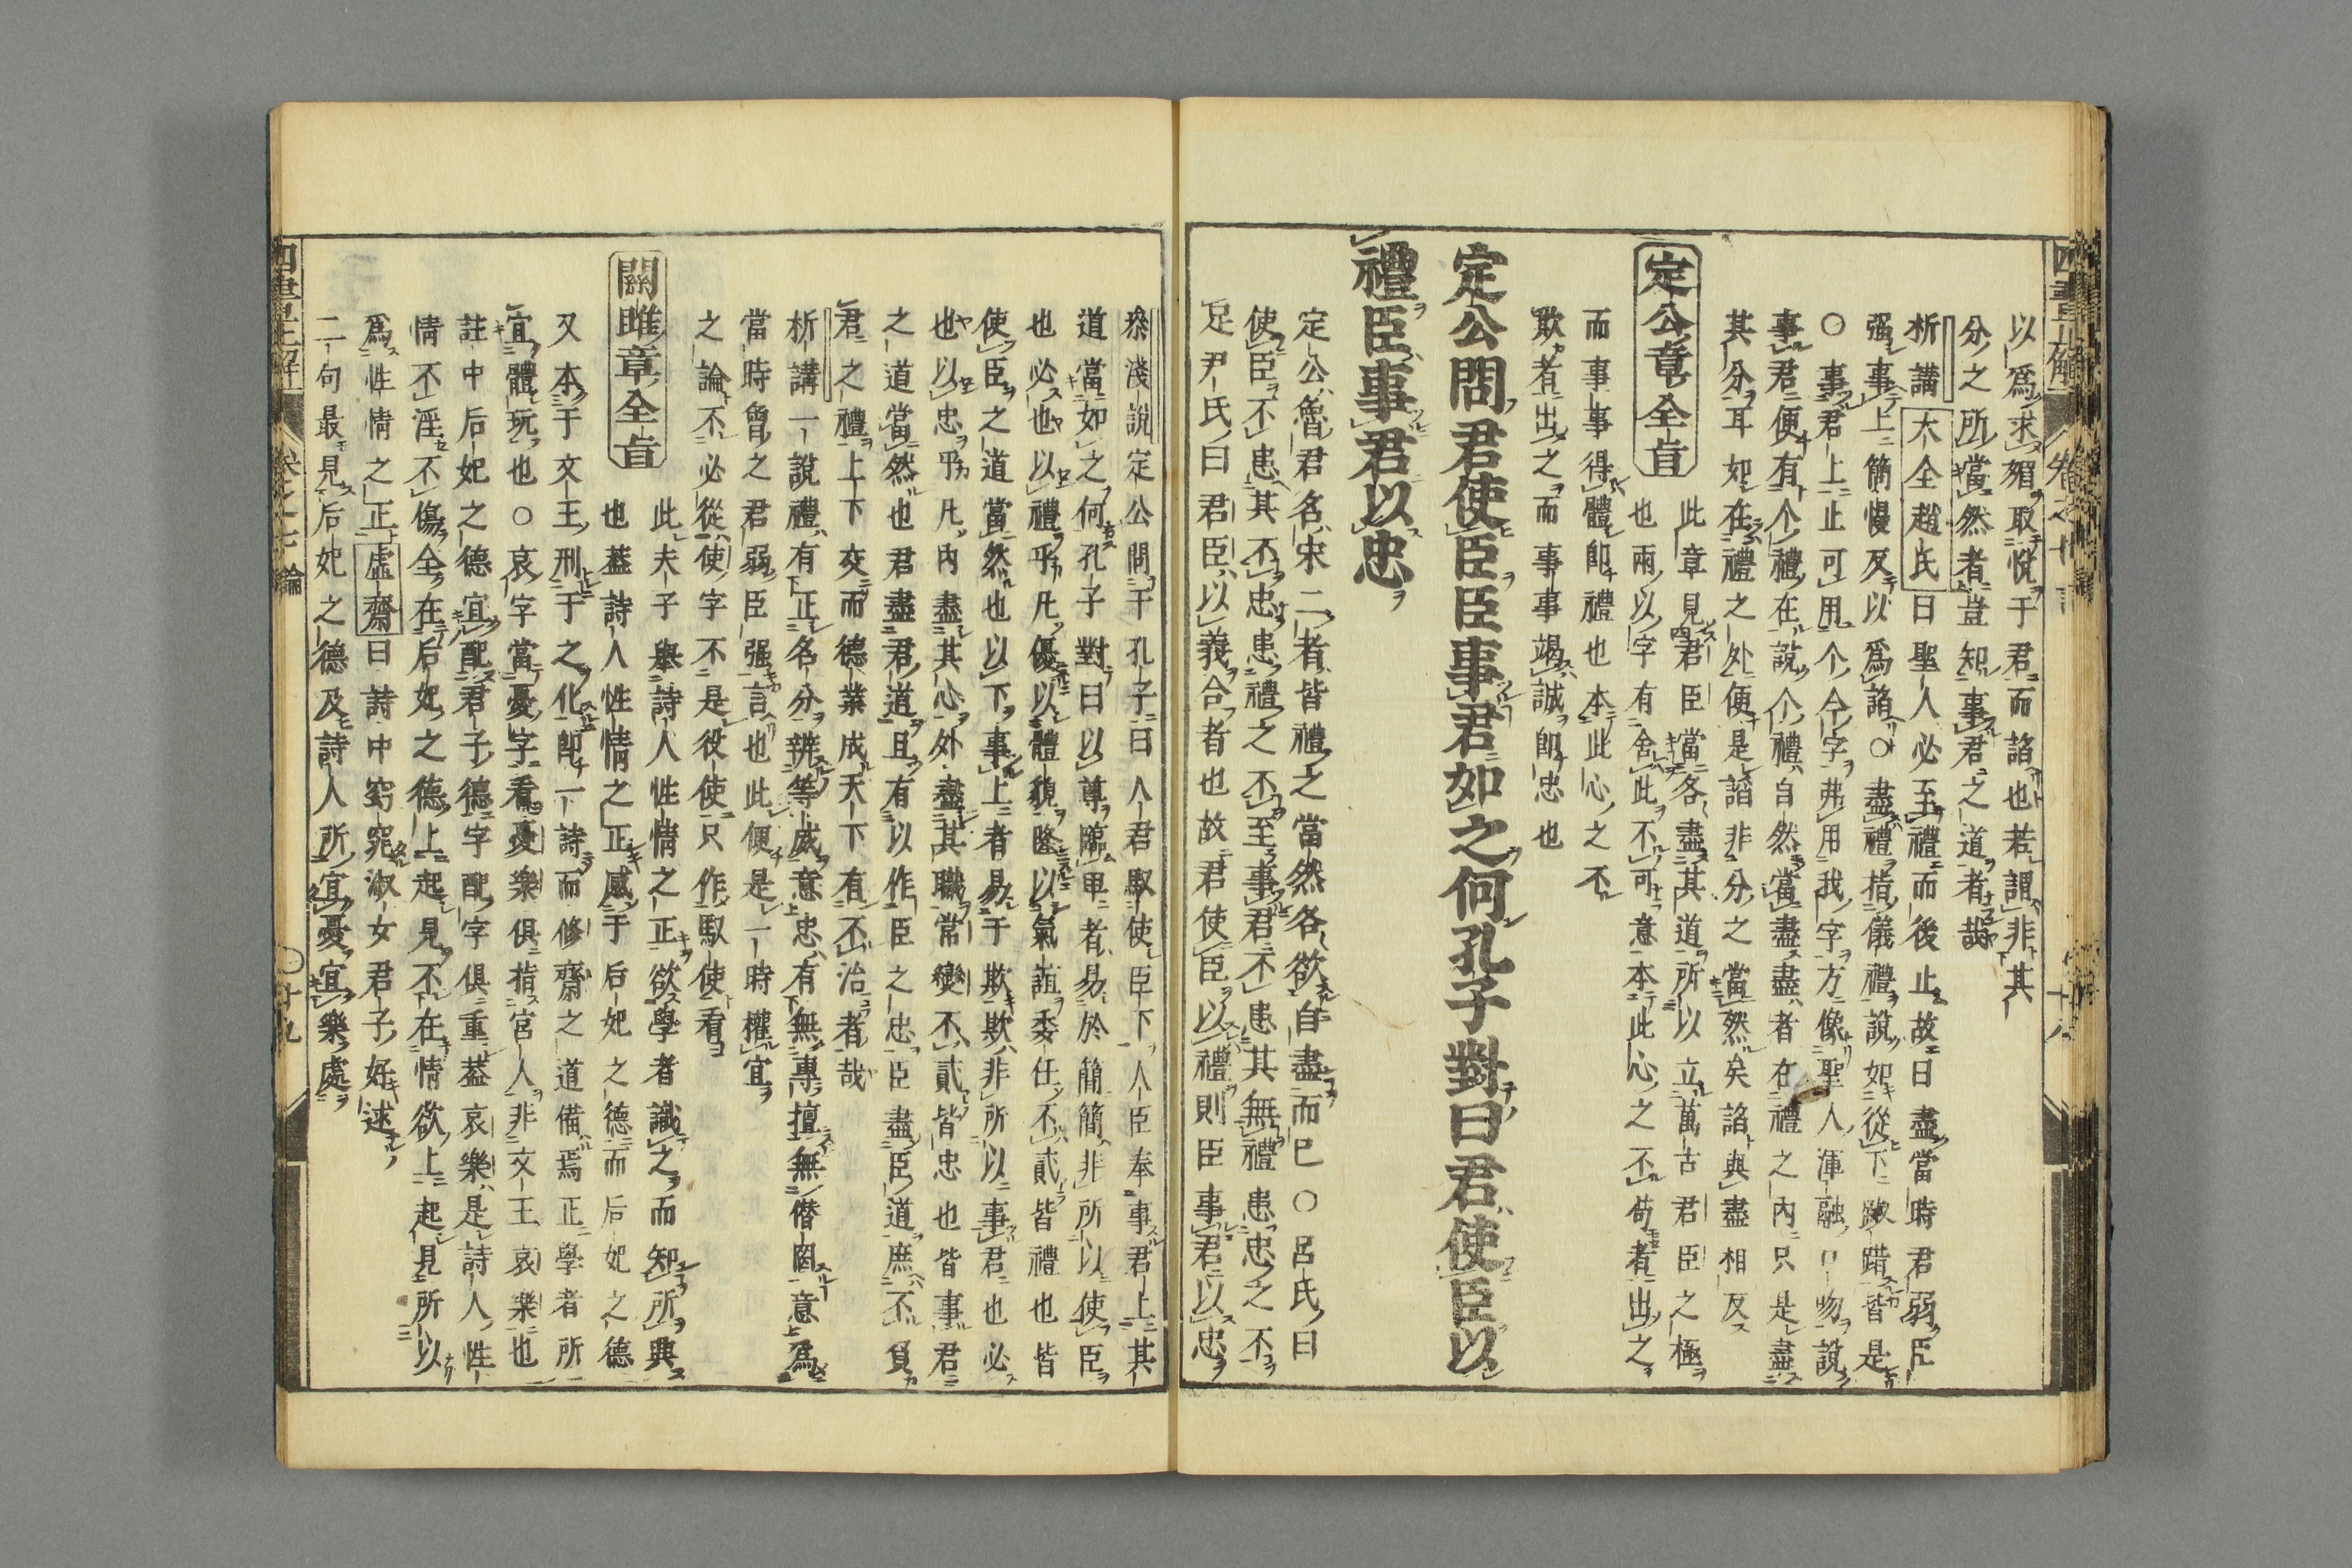 以爲求媚取悅于君而諂也若謂非其
分之所當然者豈知事君之道者哉
析講大全趙氏曰聖人必至禮而後止故曰盡當時君弱臣
强事上簡慢反以爲諂○盡禮指儀禮說如從下踧踖皆是
○事君上止可用个今字弗用我字方像聖人渾融口吻說
事君便有个禮在說个禮自然當盡盡者在禮之內只是盡
其分耳如在禮之处便是諂非分之當然矣諂與盡相反
定公章全旨
此章見君臣當各盡其道所以立萬古君臣之極
也兩以字有舍此不可意本此心之不苟者出之
而事事得體卽禮也本此心之不
欺者出之而事事竭誠卽忠也
定公問君使臣臣事君如之何孔子對曰君使臣以
禮臣事君以忠
定公魯君名宋二者皆禮之當然各欲自盡而已○呂氏曰
使臣不患其不忠患禮之不至事君不患其無禮患忠之不
足尹氏曰君臣以義合者也故君使臣以禮則臣事君以忠
叅淺說定公問于孔子曰人君馭使臣下人臣奉事君上其
道當如之何孔子對曰以尊臨卑者易於簡簡非所以使臣
也必也以禮乎凡優以體貌隆以氣誼委任不貳皆禮也皆
使臣之道當然也以下事上者易于欺欺非所以事君也必
也以忠乎凡內盡其心外盡其職常變不貳皆忠也皆事君
之道當然也君盡君道且有以作臣之忠臣盡臣道庶不負
君之禮上下交而德業成天下有不治者哉
析講一說禮有正名分辨等威意忠有無專擅無僭罔意爲
當時魯之君弱臣强言也此便是一時權宜
之論不必從使字不是役使只作馭使看
關雎章全旨
此夫子舉詩人性情之正欲學者識之而知所興
也蓋詩人性情之正感于后妃之德而后妃之德
又本于文王刑于之化卽一詩而修齋之道備焉正學者所
宜體玩也○哀字當憂字看憂樂俱指宮人非文王哀樂也
註中后妃之德宜配君子德字配字俱重葢哀樂是詩人性
情不淫不傷全在后妃之德上起見不在情欲上起見所以
爲性情之正虛齋曰詩中窈窕淑女君子好逑
二句最見后妃之德及詩人所宜憂宜樂處
四書正解
卷之七論
〇十九